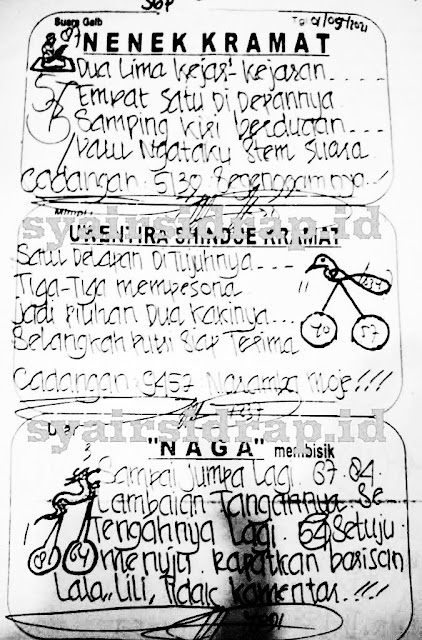 SGP
Suara Gaib
87
NENEK KRAMAT
Dua Lima kejar-kejaran....
Empat Satu Di Depannya
Samping kiri berduaan...
Palu Ngataku Stem Suara
Cadangan 5139 Segenggamnya..!
syairsidrap.id
UKENTIRA SHINDJE KRAMAT
Satu Delapan Ditujuhnya...
Tiga-Tiga mempesona
Jadi Pilihan Dua Kakinya...
Selangkah Siap Terima
70 57
Cadangan 9457 !!!
syairsidrap.id
"NAGA" membisik
Sampai Jumpa Lagi 87.84
Lambaian Tangannya. Se
Tengahnya Lagi. 54 Setuju.
8 04
menuju. Rapatkan barisan
Lala.. Lili, Tidak komentar. !!!